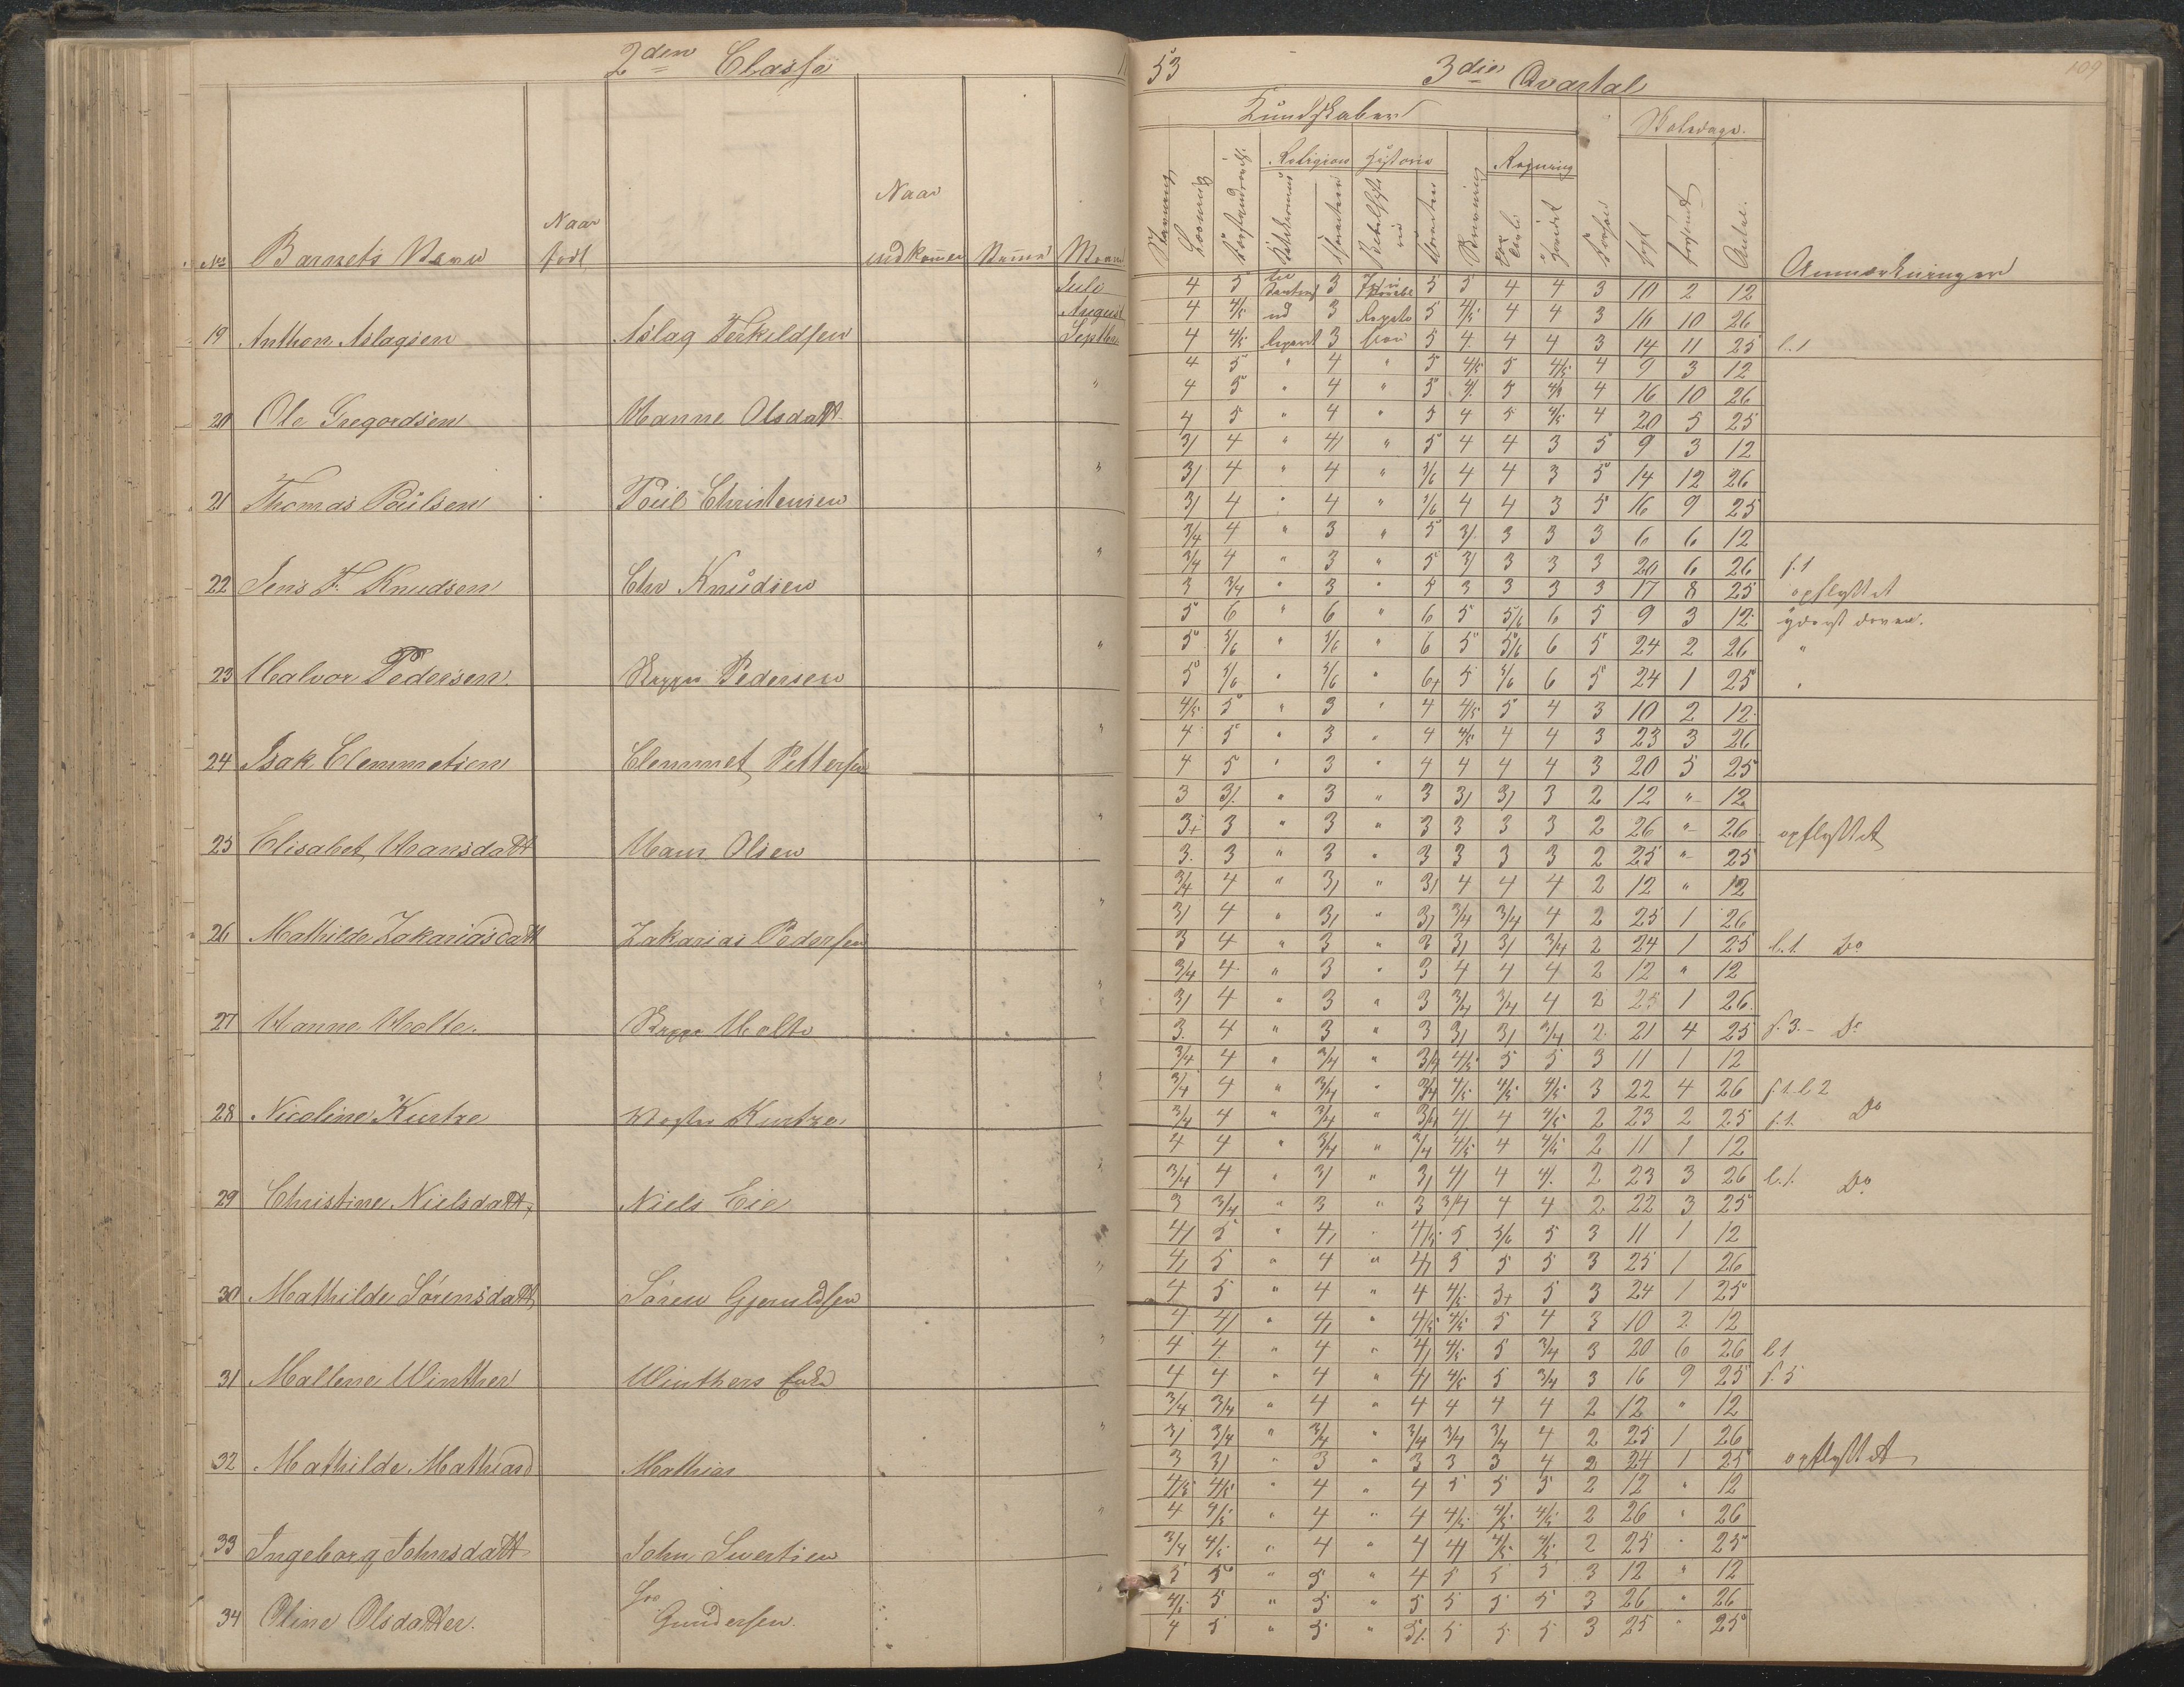 2den Classe
53
3die Qvartal
109
Kundskaber
Skoledage.
Religion Historie Regning
No Barnets Navn Naar født Naar indkommen Maaned
Anmærkninger
Juli 4 5 3 5 5 4 4 3 10 2 12
August 4 4/5 3 5 4/5 4 4 3 16 10 26
19 Anthon Aslagsen Aslag Terkildsen Septbr 4 4/5 3 5 4 4 4 3 14 11 25 l.1
4 5 " 4 " 5 4/5 5 4/5 4 9 3 12
" 4 5 " 4 " 5 4/ 5 4/5 4 16 10 26
20 Ole Gregordsen Hanne Olsdatt 4 5 " 4 " 5 4 5 4/5 4 20 5 25
3/ 4 " 4/ " 5 4 4 3 5 9 3 12
" 3/ 4 " 4 " 5/6 4 4 3 5 14 12 26
21 Thomas Poulsen Poul Christensen 3/ 4 " 4 " 5/6 4 4 3 5 16 9 25
3/4 4 " 3 " 5 3/ 3 3 3 6 6 12
" 3/4 4 " 3 " 5 3/ 3 3 3 20 6 26 f.1
22 Jens F. Knudsen Chr Knudsen 3 3/4 " 3 " 5 3 3 3 3 17 8 25 opflyttet
5 6 " 6 " 6 5 5/6 6 5 9 3 12 yderst doven.
" 5 5/6 " 5/6 " 6 5 5/6 6 5 24 2 26 "
23 Halvor Pedersen Pedersen 5 5/6 " 5/6 " 6+ 5 5/6 6 5 24 1 25 "
4/5 5 " 3 " 4 4/5 5 4 3 10 2 12
" 4 5 " 3 " 4 4/5 4 4 3 23 3 26
24 Isak Clemmetsen Clemmet Pettersen 4 5 " 3 " 4 4 4 4 3 20 5 25
3 3/ " 3 " 3 3/ 3/ 3 2 12 " 12
" 3+ 3 " 3 " 3 3 3 3 2 26 " 26 opflyttet
25 Elisabet Hansdatt Hans Olsen 3 3 " 3 " 3 3 3 3 2 25 " 25
3/4 4 " 3/ " 3/ 4 4 4 2 12 " 12
" 3/ 4 " 3/ " 3/ 3/4 3/4 4 2 25 1 26
26 Mathilde Zakariasdatt Zakarias Pedersen 3 4 " 3 " 3 3/ 3/ 3/4 2 24 1 25 l.1. Do
3/4 4 " 3 " 3 4 4 4 2 12 " 12
" 3/ 4 " 3 " 3 3/4 3/4 4 2 25 1 26
27 Hanne Holte. Holte 3 4 " 3 " 3 3/ 3/ 3/4 2 21 4 25 f.3. Do
3/4 4 " 3/4 " 3/4 4/5 5 5 3 11 1 12
" 3/4 4 " 3/4 " 3/4 4/5 4/5 4/5 3 22 4 26 f.1. l.2
28 Nicoline Kurtze Kurtze 3/4 4 " 3/4 " 3/4 4/ 4 4/5 2 23 2 25 f.1. Do
4 4 " 3/4 " 3/4 4/5 4 4/5 2 11 1 12
" 3/4 4 " 3/ " 3/ 4/ 4 4/ 2 23 3 26 l.1. Do
29 Christine Nielsdatt, Niels Eie 3 3/4 " 3 " 3 3/4 4 4 2 22 3 25
4/ 5 " 4/ " 4/5 5 5/6 5 3 11 1 12
" 4/ 5 " 4 " 4/ 5 5 5 3 25 1 26
30 Mathilde Sørensdatt, Søren Gjeruldsen 4 5 " 4 " 4 4/5 5+ 5 3 24 1 25
4 4/ " 4/ " 4/5 4/5 5 4 3 10 2 12
" 4 4 " 4 " 4/ 4/5 5 3/4 3 20 6 26 l.1
31 Mallene Winther Winthers Enke 4 4 " 4 " 4/ 4/5 5 3/4 3 16 9 25 f.5
3/4 3/4 " 4 " 4 4 4 4 2 12 " 12
" 3/ 3/4 " 3/4 " 3/4 3/4 3/4 4 2 25 1 26
32 Mathilde Mathiasd Mathias 3 3/ " 3 " 3 3 3 4 2 24 1 25 opflyttet
4/5 4/5 " 4 " 4 5 5 5 2 12 " 12
" 4 4/5 " 4 " 4 4/5 4/5 4/5 2 26 " 26
33 Ingeborg Johnsdatt John Sivertsen 3/4 4/5 " 4 " 4 4/ 4/5 4/5 2 25 " 25
5 5 " 5 " 4 5 5 5 3 12 " 12
" 4/5 5 " 5 " 5 5 5 5 3 26 " 26
34 Oline Olsdatter. Gundersen. 4 5 " 5 " 5/ 5 5 5 3 25 " 25